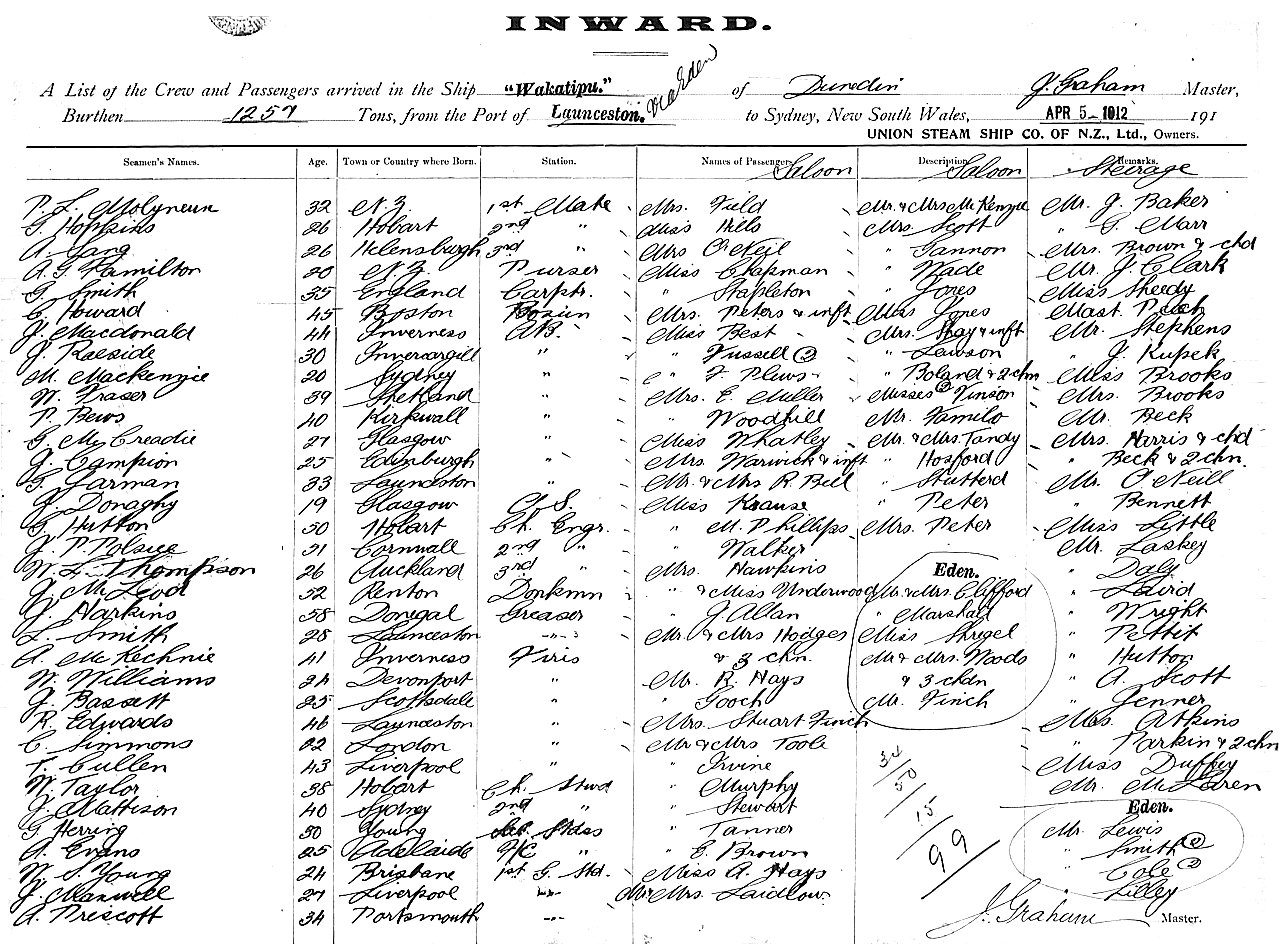 INWARD.
A List of the Crew and Passengers arrived in the Ship "Wakatipu." of Dunedin J. Graham Master,
via Eden
Burthen 1257 Tons, from the Port of Launceston. to Sydney, New South Wales, APR 5 - 1912 191
UNION STEAM SHIP CO. OF N.Z., Ltd., Owners.
Seamen's Names. Age. Town or Country where Born. Station. Names of Passengers Saloon Description Saloon Remarks. Steerage
P. L. Molyneux 32 N.Z. 1st Mate Mrs. Field Mr. & Mrs McKenzie Mr. J. Baker
G. Hopkins 26 Hobart 2nd " Miss Hils Mrs. Scott " G. Marr
A. Gang 26 Helensburgh 3rd " Mrs O'Neil " Gannon Mrs. Brown & chd
A. G. Hamilton 20 N.Z. Purser Miss Chapman " Wade Mr. J. Clark
G. Smith 35 England Carptr. " Stapleton " Jones Miss Sheedy
C. Howard 45 Boston Bosun Mrs. Peters & inft Miss Jones Mast.
J. Macdonald 44 Inverness A.B. Miss Best Mrs. Shay & inft Mr. Stephens
J. Raeside 30 Invercargill " " Fussell (2) " Lawson " J. Kupek
M. Mackenzie 20 Sydney " " F. Plews " Boland & 2 chn Miss Brooks
W. Fraser 39 Shetland " Mrs. E. Muller Misses (2) Vinson Mrs. Brooks
P. Bews 40 Kirkwall " " Woodhill Mr. Familo Mr. Beck
G. McCreadie 27 Glasgow " Miss Whatley Mr. & Mrs. Tandy Mrs. Harris & chd
J. Campion 25 Edinburgh " Mrs. Warwick & inft " Hosford " Beck & 2 chn.
G. Garman 33 Launceston " Mr. & Mrs R. Bell " Stutterd Mr. O'Neill
J. Donaghy 19 Glasgow O.S. Miss Krause " Peter " Bennett
G. Hutton 50 Hobart Ch. Engr. " M. Phillips Mrs. Peter Miss Little
J. P. 31 Cornwall 2nd " " Walker Mr. Laskey
W. L. Thompson 26 Auckland 3rd " Mrs. Hawkins Eden. " Daly
J. McLeod 52 Renton Donkmn " & Miss Underwood Mr. & Mrs. Clifford " Laird
J. Harkins 58 Donegal Greaser " J. Allan " Marshall " Wright
L. Smith 28 Launceston " Mr. & Mrs Hodges Miss Shrigel " Pettit
A. McKechnie 41 Inverness Firis & 3 chn. Mr & Mrs. Woods " Hutton
W. Williams 24 Devonport " Mr. R. Hays & 3 chdn " A. Scott
J. Bassett 25 Scottsdale " " Gooch Mr. Finch " Jenner
R. Edwards 46 Launceston " Mrs. Stuart Finch Mrs. Atkins
C. Simmons 22 London " Mr & Mrs Toole " Parkin & 2 chn
T. Cullen 43 Liverpool " " Irvine 34 Miss Duffey
W. Taylor 38 Hobart Ch. Stwd " Murphy 50 Mr. McLaren
J. Mattison 40 Sydney 2nd " " Stewart 15 Eden.
G. Herring 30 Young Stdss " Tanner 99 Mr. Lewis
A. Evans 25 Adelaide F/C " " E. Brown " Smith (2)
W. S. Young 24 Brisbane 1st G. Std. Miss A. Hays " Cole (2)
J. Maxwell 27 Liverpool " Mr. Mrs. Laidlow. " Lilley
A. Prescott 34 Portsmouth " J. Graham Master.